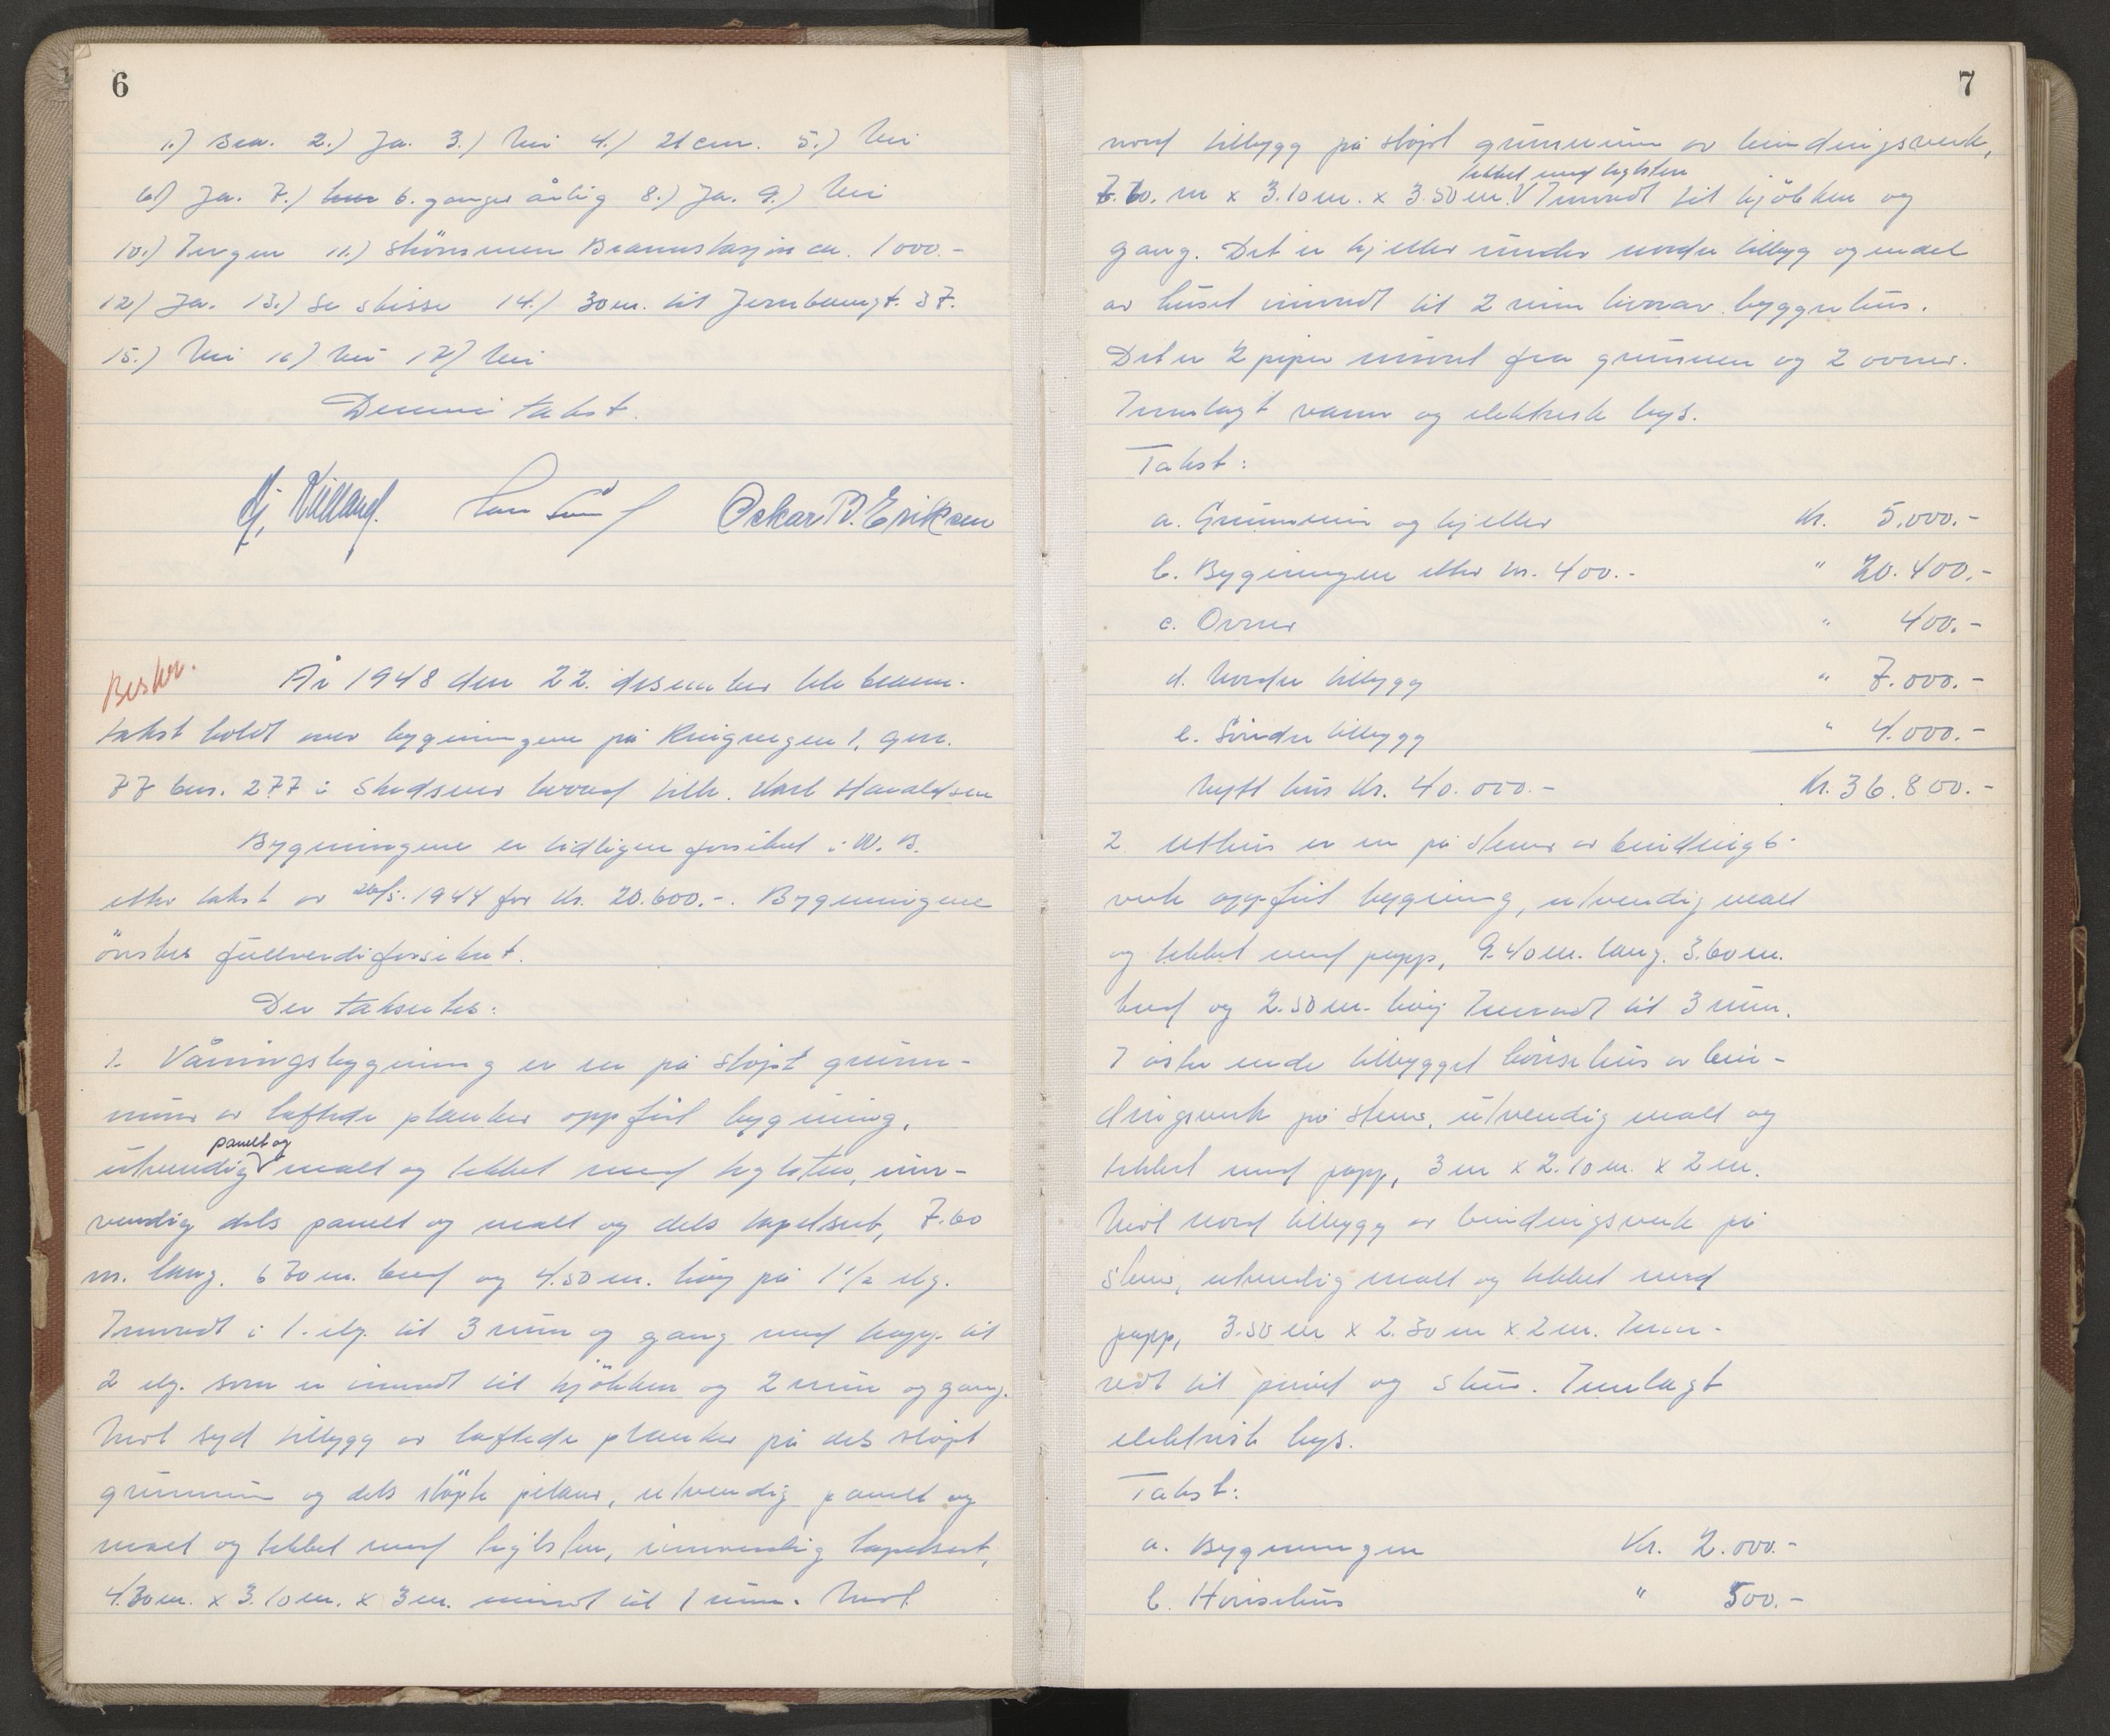 6
1.) Bra. 2.) Ja. 3.) Nei 4.) 21 cm. 5.) Nei
6.) Ja. 7.) 6. ganger årlig 8.) Ja. 9.) Nei
10.) Ingen 11.) Strömmen Brannstasjon ca. 1000.-
12.) Ja. 13.) Se skisse 14.) 30 m. til Jernbanegt. 37.
15.) Nei 16.) Nei 17.) Nei
Denne takst.
Oskar B. Eriksen
Beskr.
År 1948 den 22. desember ble brann-
takst holdt over bygningene på Ringvegen 1, gnr.
77 bnr. 277 i Skedsmo herred tilh. Karl Haraldsen
Bygningene er tidligere forsikret i N. B.
etter takst av 26/5. 1944 for kr. 20.600.-. Bygningene
önskes fullverdiforsikret.
Der takseres:
1. Våningsbygning er en på stöpt grunn-
mur av laftede planker oppfört bygning,
panelt og
utvendig V malt og tekket med teglsten, inn-
vendig dels panelt og malt og dels tapetsert, 7.60
m. lang, 6.70 m. bred og 4.50 m. høy på 1 1/2 etg.
Innredt i 1. etg. til 3 rum og gang med trapp til
2 etg. som er innredt til kjökken og 2 rum og gang.
Mot syd tilbygg av laftede planker på dels stöpt
grunnmur og dels stöpte pelarer, utvendig panelt og
malt og tekket med teglsten, innvendig tapetsert,
4.30 m. x 3.10 m. x 3 m. innredt til 1 rum. Mot
7
nord tilbygg på stöpt grunnmur av bindingsverk,
tekket med teglsten
7.60. m x 3.10 m. x 3.50 m. V Innredt til kjökken og
gang. Det er kjeller under nordre tilbygg og endel
av huset innredt til 2 rum hvorav bryggerhus.
Det er 2 piper muret fra grunnen og 2 ovner.
Innlagt vann og elektrisk lys.
Takst:
a. Grunnmur og kjeller Kr. 5.000.-
b. Bygningen etter kr. 400.- " 20.400.-
c. Ovner " 400.-
d. Nordre tilbygg " 7.000.-
e. Söndre tilbygg " 4.000.-
Nytt hus Kr. 40.000.- Kr. 36.800.-
2. Uthus er en på stener av bindings-
verk oppfört bygning, utvendig malt
og tekket med papp, 9.40 m. lang, 3.60 m.
bred og 2.50 m. høy Innredt til 3 rum.
I östre ende tilbygget hönsehus av bin-
dingsverk på stener, utvendig malt og
tekket med papp, 3 m x 2.10 m. x 2 m.
Mot nord tilbygg av bindingsverk på
stener, utvendig malt og tekket med
papp, 3.50 m x 2.30 m x 2 m. Inn-
redt til privet og skur. Innlagt
elektrisk lys.
Takst:
a. Bygningen Kr. 2.000.-
b. Hönsehus " 500.-